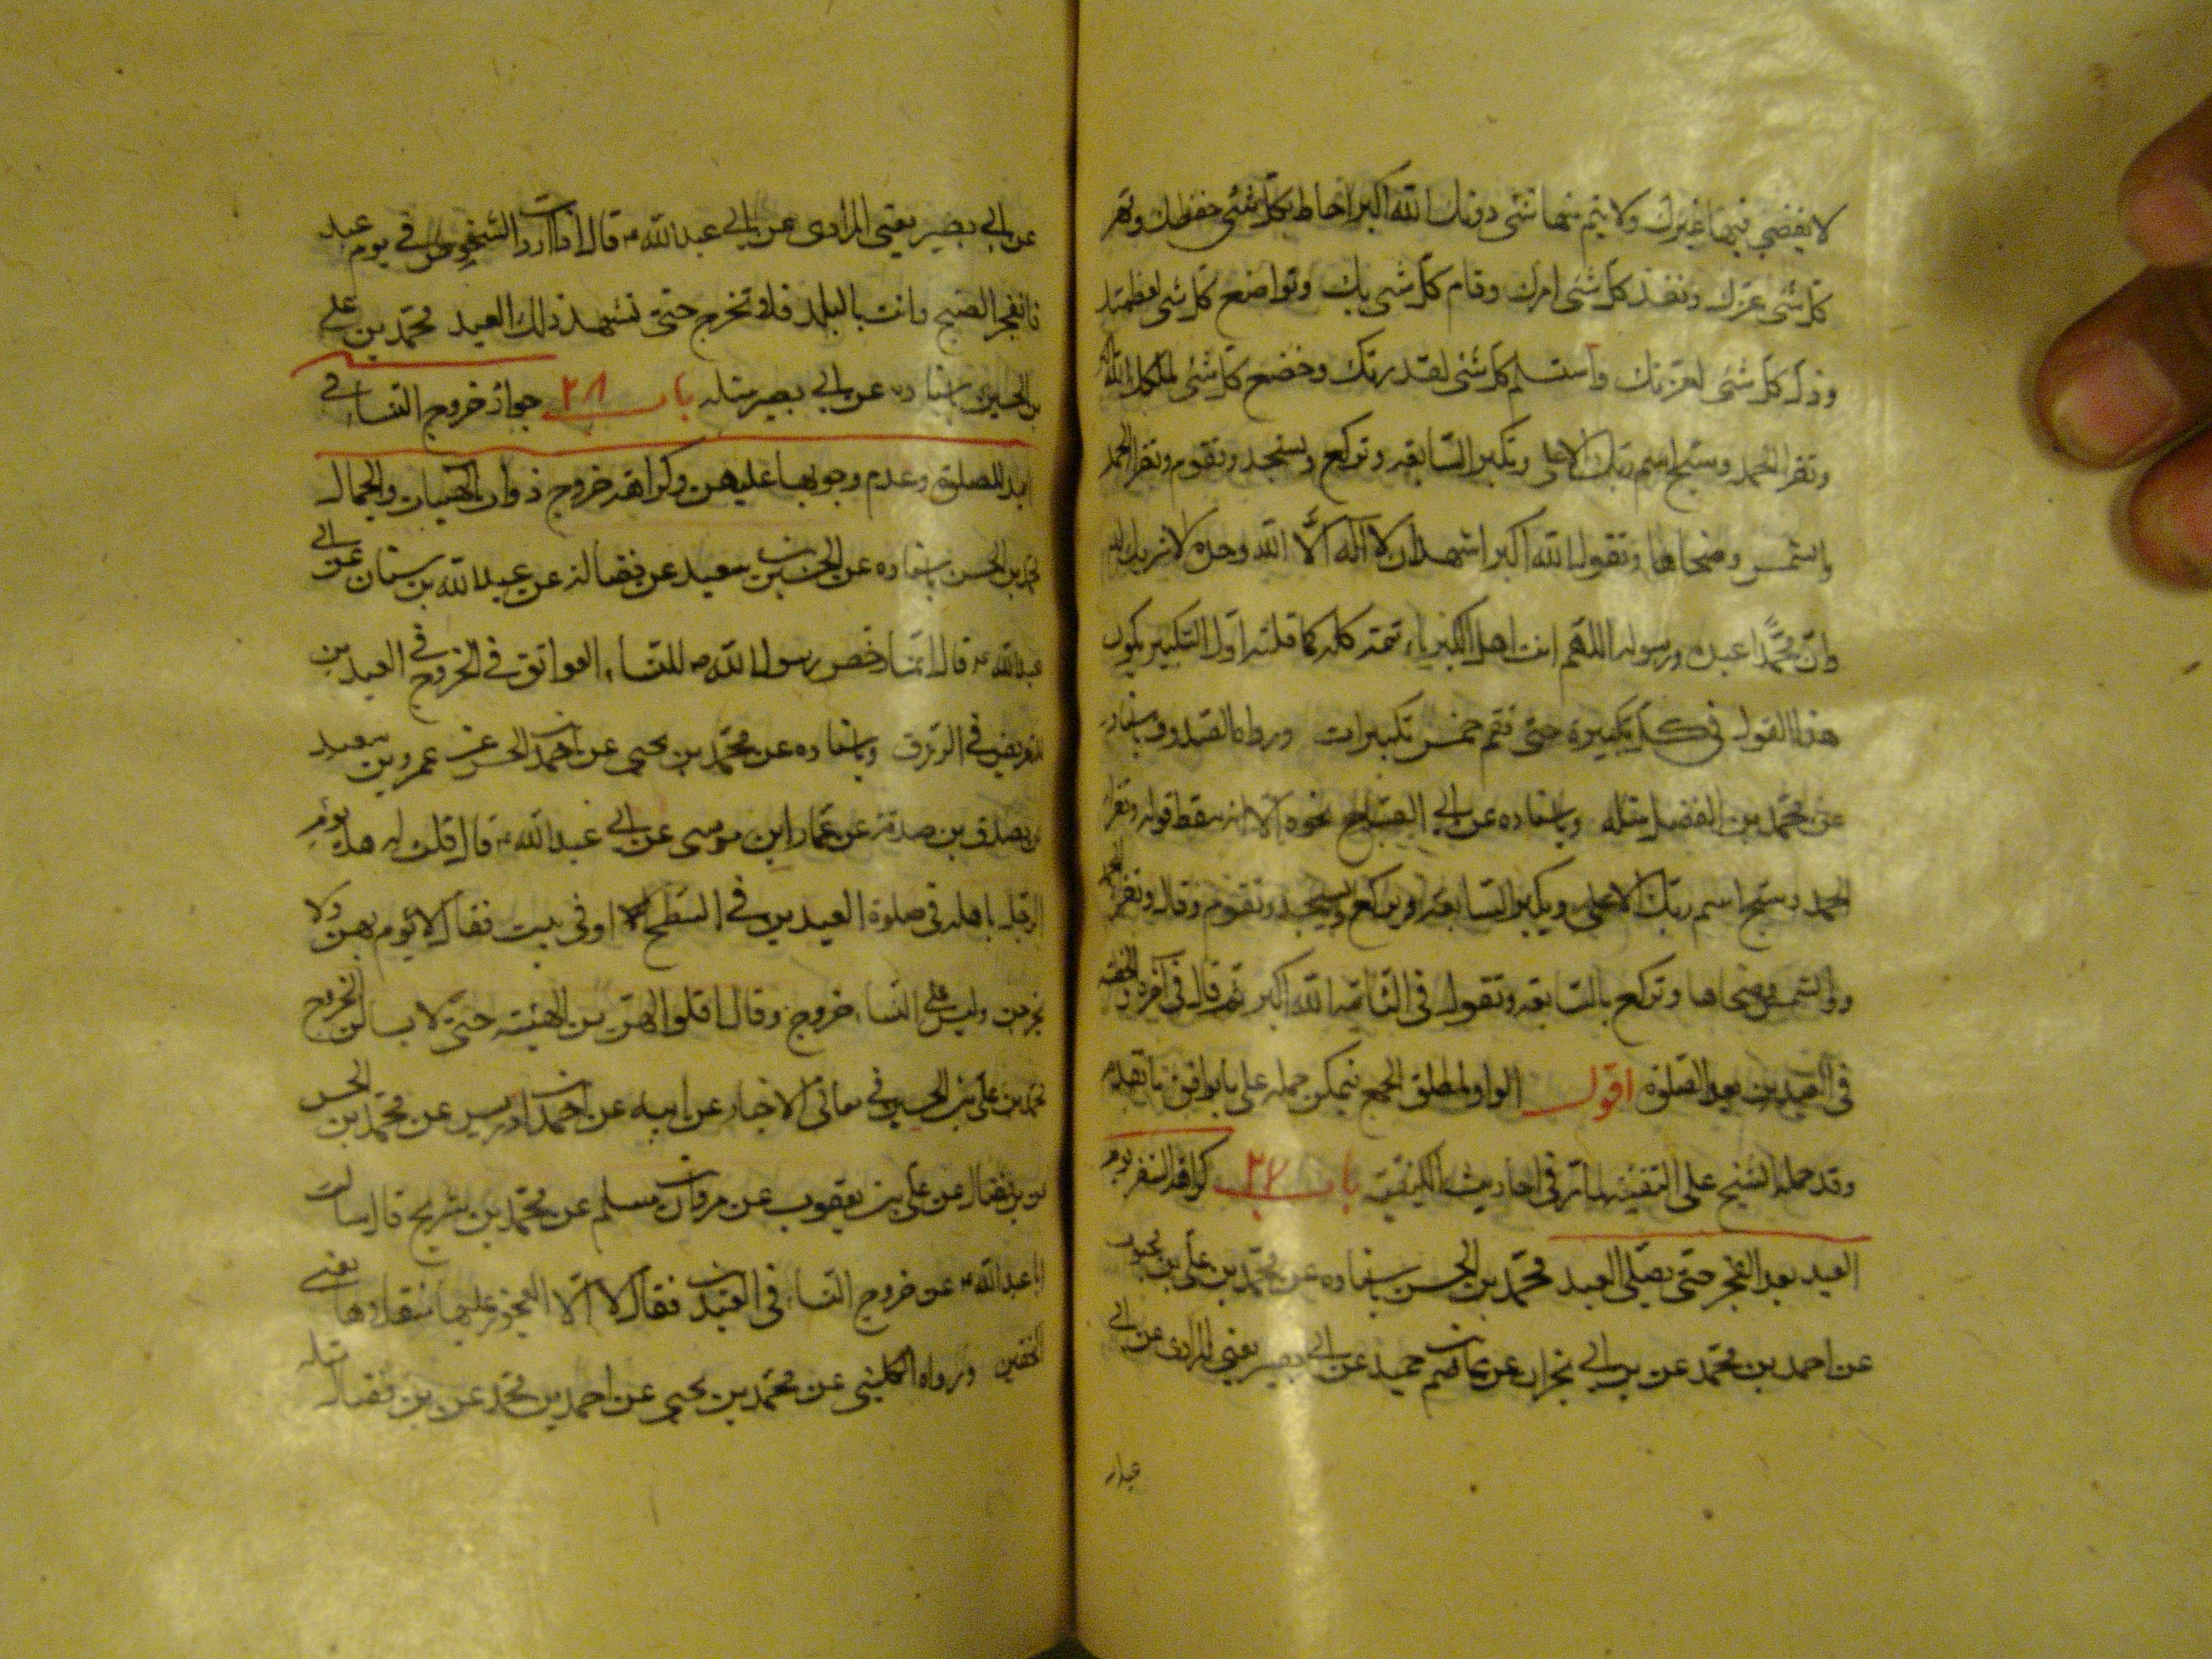 لا يفضي فيها غيرك ولا يتم منها شئ دونك الله اكبر احاط بكل شئ حفظك وقهر
كل شئ عزك ونفذ كل شئ امرك وقام كل شئ بك وتواضع كل شئ لعظمتك
وذل كل شئ لعزتك واستسلم كل شئ لقدرتك وخضع كل شئ لملكك الله اكبر
وتقرا الحمد وسبح اسم ربك الاعلى وتكبر السابعه وتركع وتسجد وتقوم وتقرا الحمد
والشمس وضحاها وتقول الله اكبر اشهد ان لا اله الا الله وحده لا شريك له
وان محمدا عبده ورسوله اللهم انت اهل الكبرياء تتمه كله كما قلته اول التكبير يكون
هذا القول في كل تكبيرة حتى تتم خمس تكبيرات ورواه الصدوق باسناده
عن محمد بن الفضيل مثله وباسناده عن ابي الصباح نحوه الا انه سقط قوله وتقرا
الحمد وسبح اسم ربك الاعلى ويكبر السابعه ويركع ويسجد وتقوم وقال وتقرا الحمد
والشمس وضحاها وتركع بالسابعه وتقول في الثانيه الله اكبر ثم قال في آخره والخطبه
في العيدين بعد الصلوة اقول الواو لمطلق الجمع فيمكن حمله على ما يوافق ما تقدم
وقد حمله الشيخ على التقية لما مر في احاديث الكيفية باب ٢٧ كراهة السفر يوم
العيد بعد الفجر حتى يصلى العيد محمد بن الحسن باسناده عن محمد بن على بن محبوب
عن احمد بن محمد عن بن ابي نجران عن عاصم بن حميد عن ابي بصير يعني المرادى عن ابي
عبدا
عن ابي بصير يعنى المرادى عن ابي عبد الله ع قال اذا اردت الشخوص في يوم عيد
فانفجر الصبح وانت بالبلد فلا تخرج حتى تشهد ذلك العيد محمد بن على
بن الحسين باسناده عن ابي بصير مثله باب ٢٨ جواز خروج النساء في
العيد للصلوة وعدم وجوبها عليهن وكراهة خروج ذوات الهيئات والجمال
محمد بن الحسن باسناده عن الحسين بن سعيد عن فضالة عن عبد الله بن سنان عن ابي
عبد الله ع قال انما رخص رسول الله ص للنساء العواتق في الخروج في العيدين
للتعريض في الرزق وباسناده عن محمد بن يحيى عن احمد بن الحسن عن عمرو بن سعيد
عن مصدق بن صدقة عن عمار ابن موسى عن ابي عبد الله ع قال قلت له هل يؤم
الرجل باهله في صلوة العيدين في السطح او في بيت فقال لا يؤم بهن ولا
يخرجن وليس على النساء خروج وقال اقلوا لهن من الهيئة حتى لا يسالن الخروج
محمد بن على بن الحسين في معاني الاخبار عن ابيه عن احمد بن ادريس عن محمد بن الحسن
بن فضال عن على بن يعقوب عن مروان بن مسلم عن محمد بن شريح قال سالت
ابا عبد الله ع عن خروج النساء في العيدين فقال لا الا العجوز عليها منقلاها يعنى
الخفين ورواه الكليني عن محمد بن يحيى عن احمد بن محمد عن بن فضال مثله